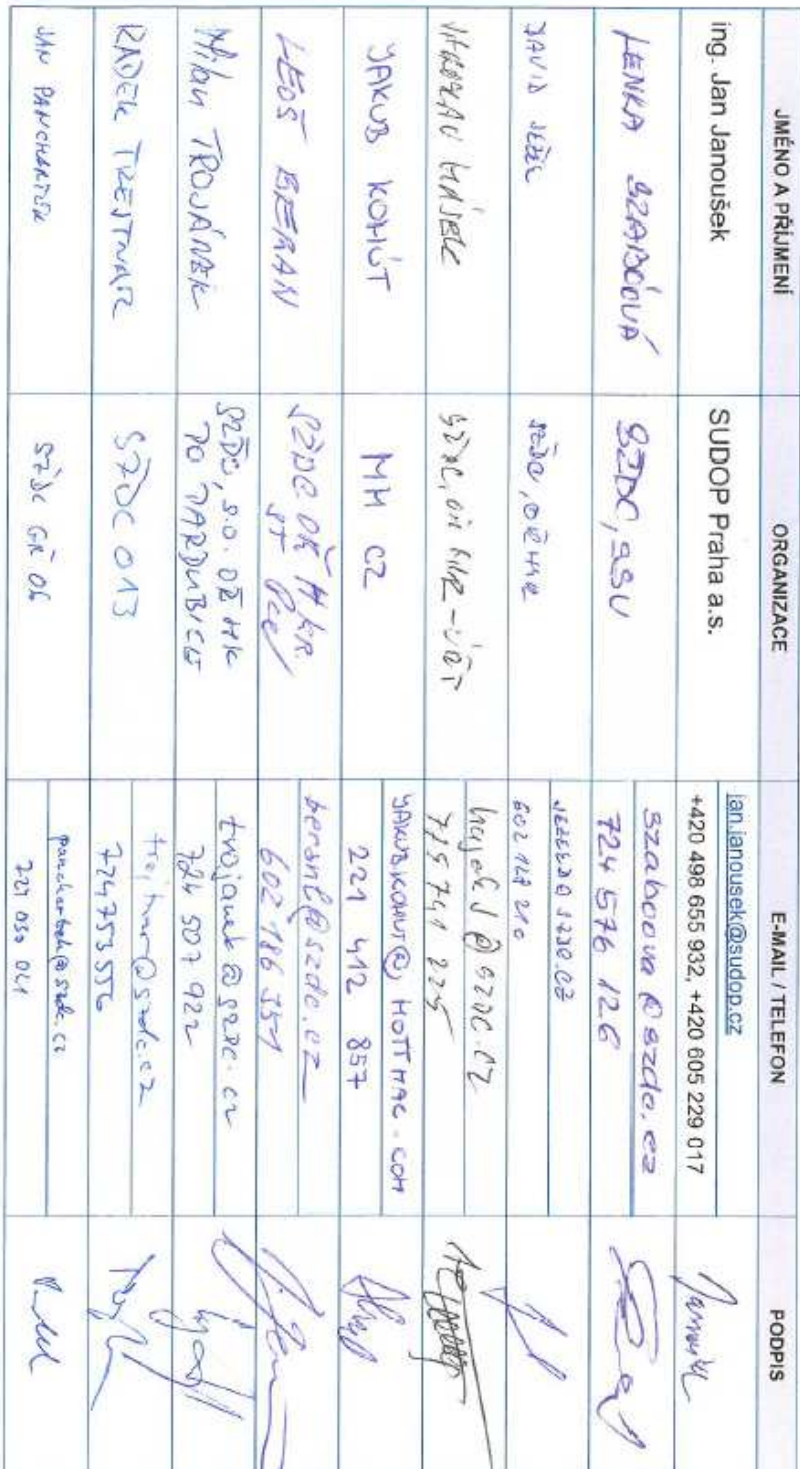 JMÉNO A PŘÍJMENÍ ORGANIZACE E-MAIL / TELEFON PODPIS
ing. Jan Janoušek SUDOP Praha a.s. jan.janousek@sudop.cz
+420 498 655 932, +420 605 229 017
LENKA SZABÓOVÁ SŽDC, SSV szaboova@szdc.cz
724 576 126
DAVID SŽDC, OŘ HKR
602 148 210
HÁJEK SŽDC, OŘ HKR
725 741 225
JAKUB KOHÚT MH CZ JAKUBKOHUT@HOTMAIL.COM
221 412 857
LEOŠ BERAN SŽDC OŘ HKR beranl@szdc.cz
ST 602 786 351
Milan TROJÁNEK SŽDC, s.o. OŘ HK trojanek@szdc.cz
PO PARDUBICE 724 507 922
RADEK TREJTNAR SŽDC O13 trejtnar@szdc.cz
724753556
JAN PANCHARTEK SŽDC GŘ O6 panchartek@szdc.cz
721 050 041